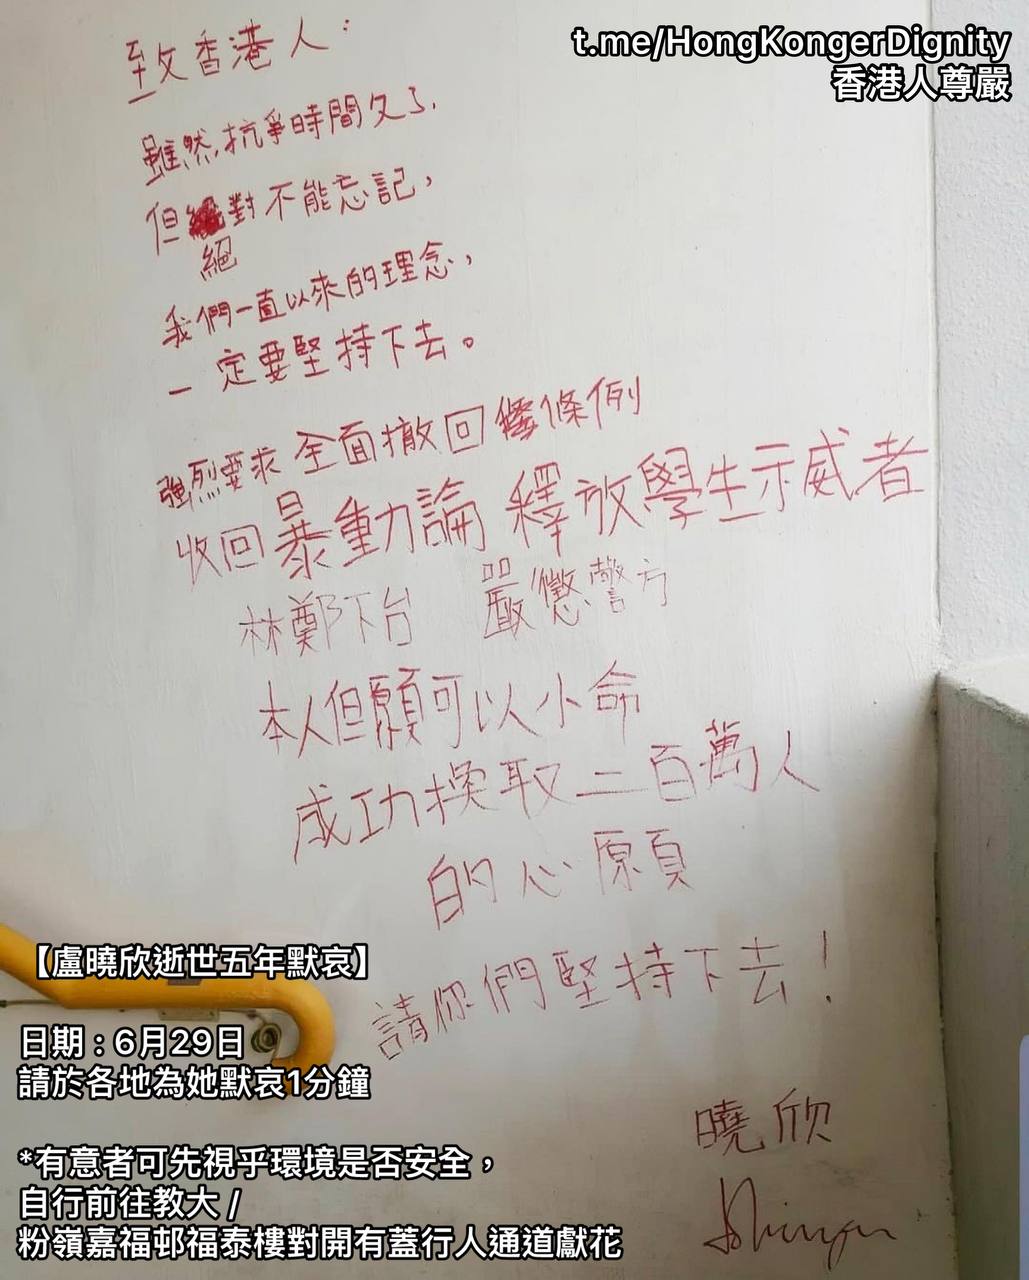 t.me/HongKongerDignity
香港人尊嚴
致香港人：
雖然,抗爭時間久了,
但絕對不能忘記，
我們一直以來的理念，
一定要堅持下去。
強烈要求 全面撤回條例
收回暴動論 釋放學生示威者
林鄭下台 嚴懲警方
本人但願可以小命
成功換取二百萬人
的心願
請你們堅持下去！
曉欣
【盧曉欣逝世五年默哀】
日期 : 6月29日
請於各地為她默哀1分鐘
*有意者可先視乎環境是否安全，
自行前往教大 /
粉嶺嘉福邨福泰樓對開有蓋行人通道獻花